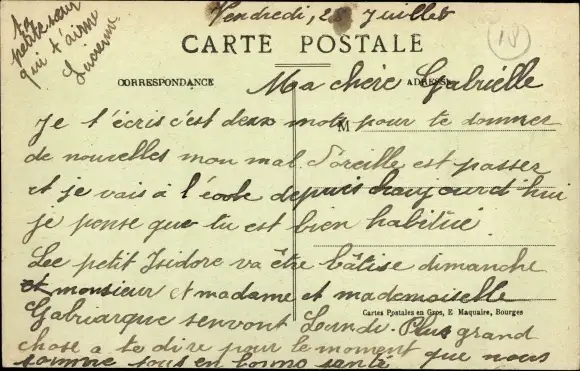 Vendredi, 25 Juillet
ta
petite sœur
qui t'aime
Lucienne
18
CARTE POSTALE
CORRESPONDANCE
ADRESSE
Ma chère Gabrielle
M
Je t'écris c'est deux mots pour te donner
de nouvelles mon mal d'oreille est passer
et je vais à l'école depuis haujourd'hui
je pense que tu est bien habitué
Lee petit Isidore va être bâtise dimanche
et monsieur et madame et mademoiselle
Cartes Postales en Gros, E. Maquaire, Bourges
servont Lundi. Plus grand
chose a te dire pour le moment que nous
somme tous en bonne senté